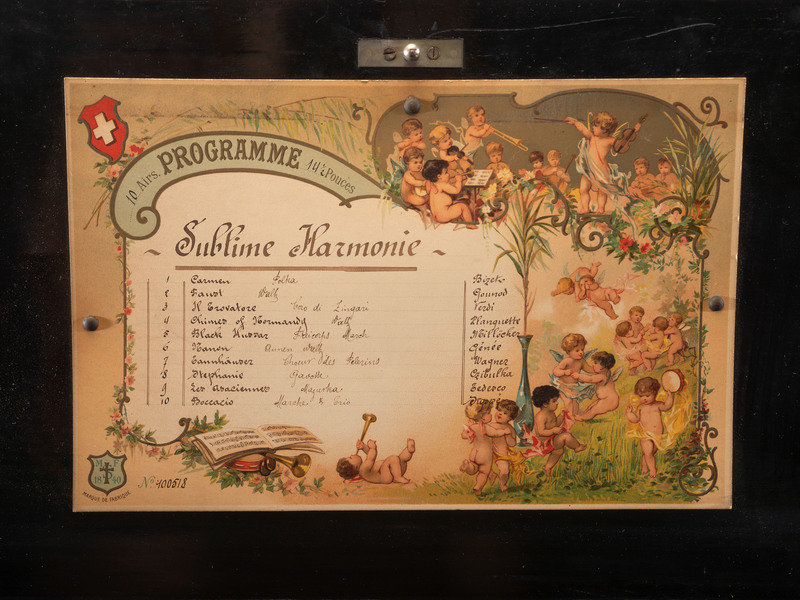 10 Airs. PROGRAMME 14½ Pouces
~ Sublime Harmonie ~
1 Carmen Polka Bizet
2 Faust Waltz Gounod
3 Il Trovatore Vao di Zingari Verdi
4 Chimes of Normandy Waltz Planquette
5 Black Hussar March Millöcker
6 Nanon Waltz Genée
7 Tannhäuser Choeur des Pelerins Wagner
8 Stephanie Gavotte Czibulka
9 Les Alsaciennes Mazurka Tedesco
10 Boccacio Marche & Trio
18 40
MARQUE DE FABRIQUE
No 400518